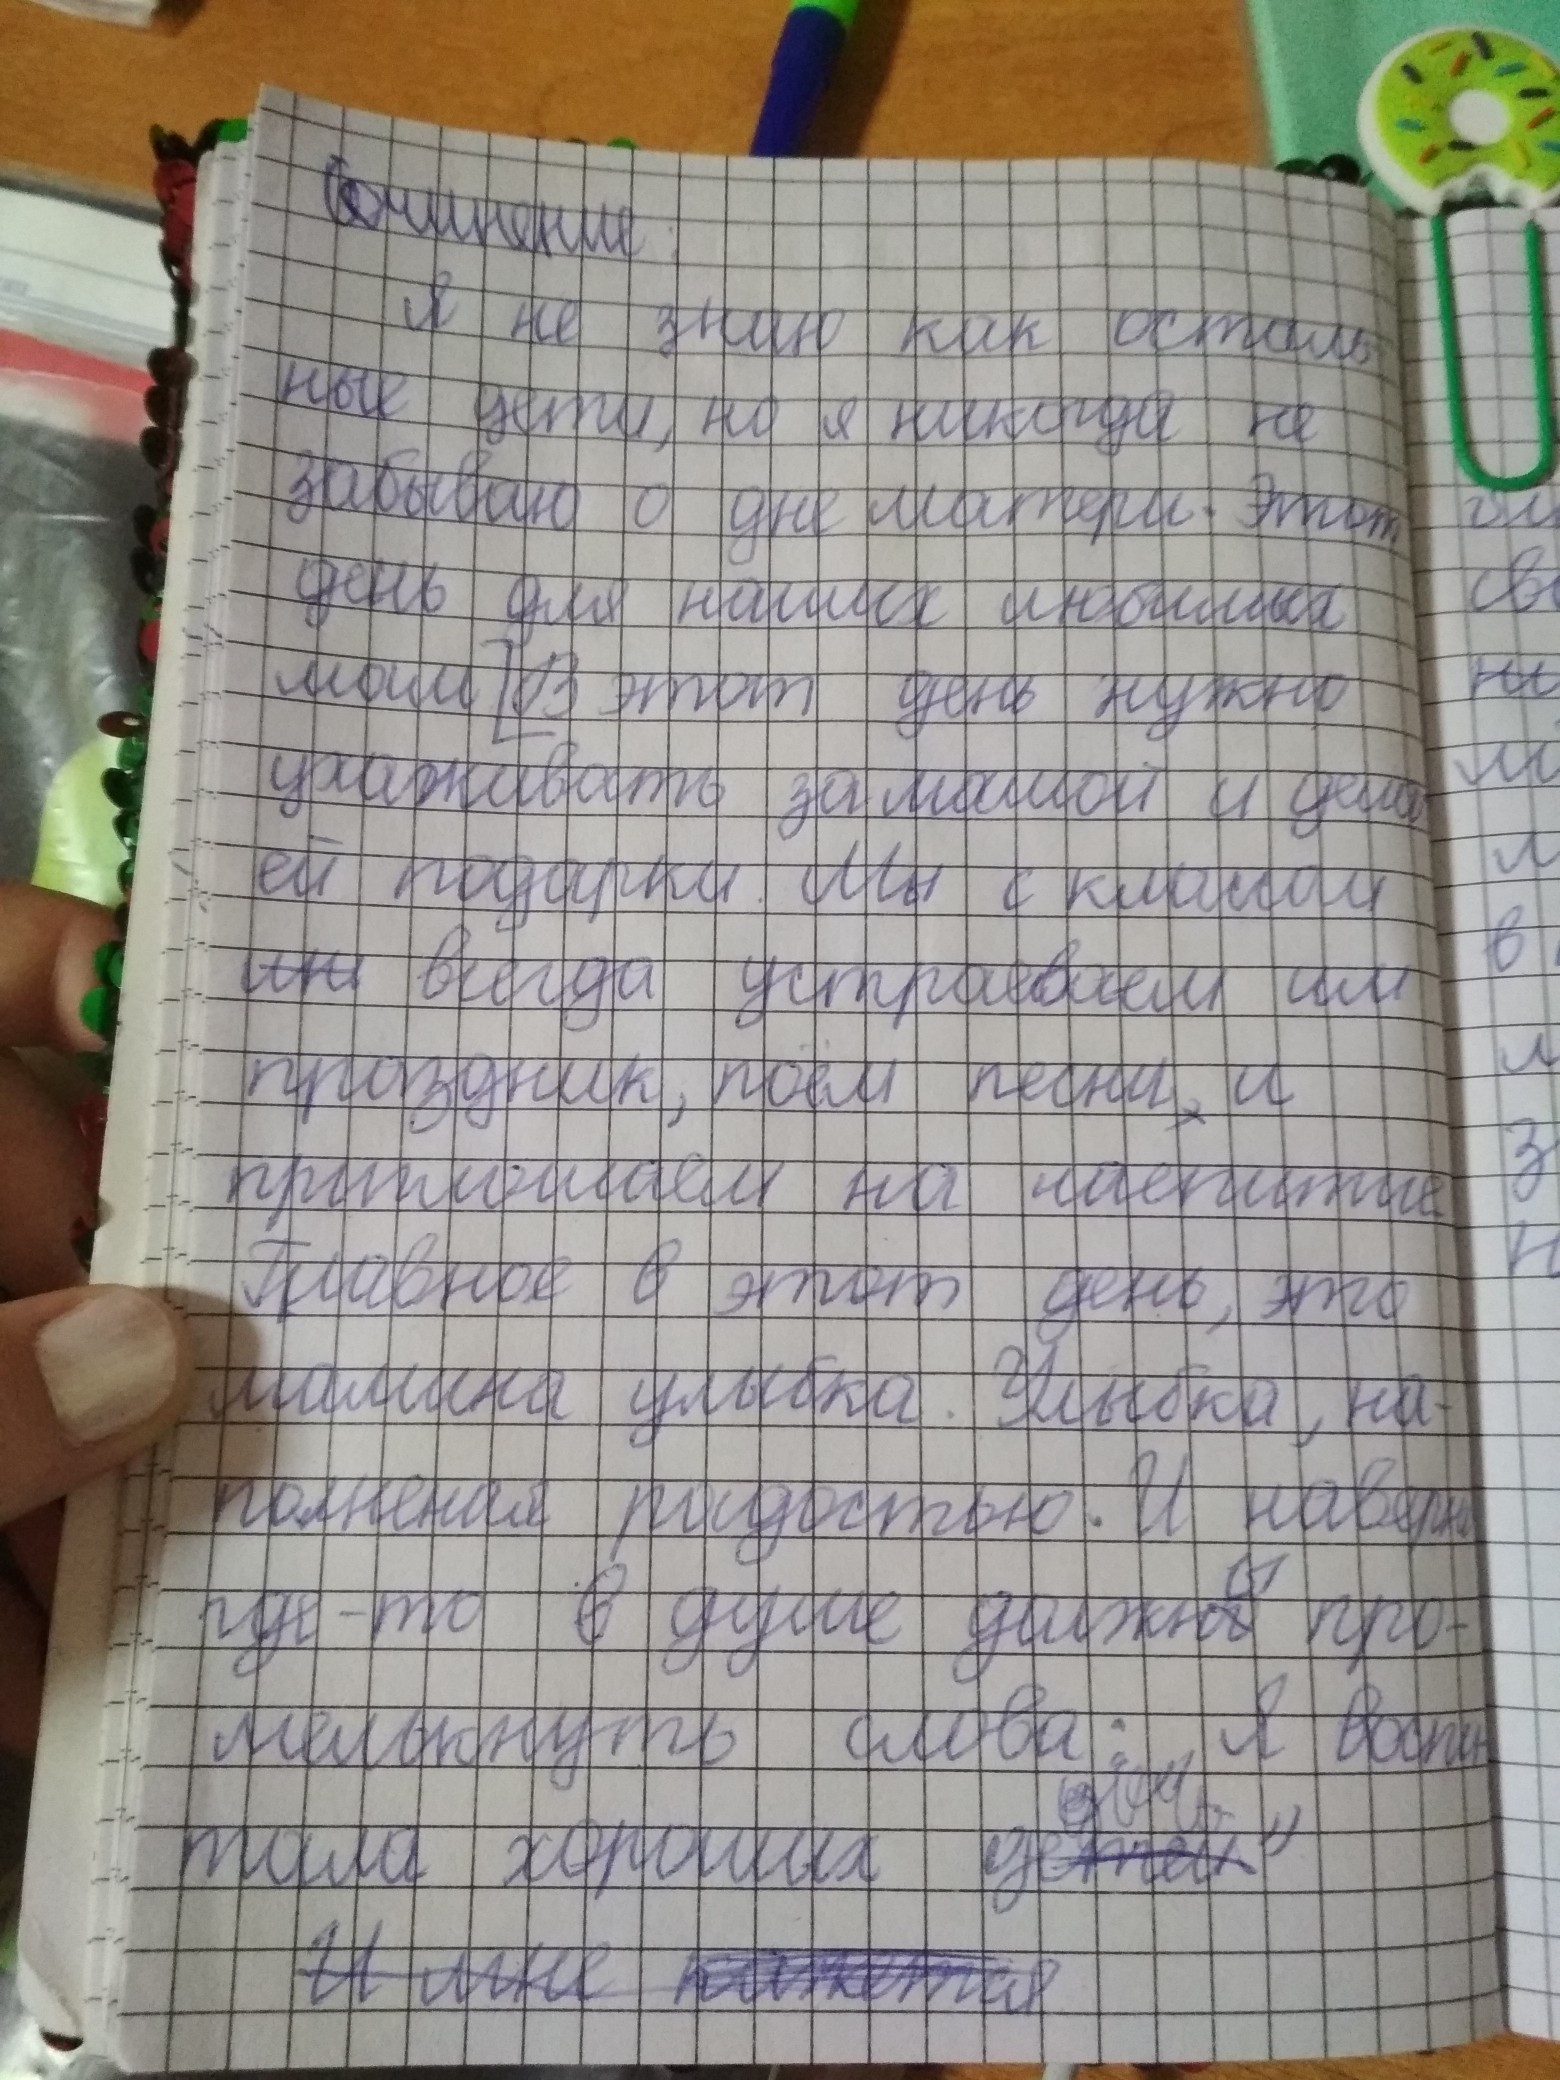 Сочинение:
Я не знаю как осталь
ные дети, но я никогда не
забываю о дне матери. Этот
день для наших любимых
мам [В этот день нужно
ухаживать за мамой и дела
ей подарки. Мы с классом
им всегда устраеваем им
праздник, поём песни, и
приглошаем на чаепитие
Главное в этот день, это
мамина улыбка. Улыбка, на-
полненая радостью. И наверн
где-то в душе должны про-
мелькнуть слова: Я воспи
тала хороших детей"
И мне кажется
сво
ны
м
в
м
з
н